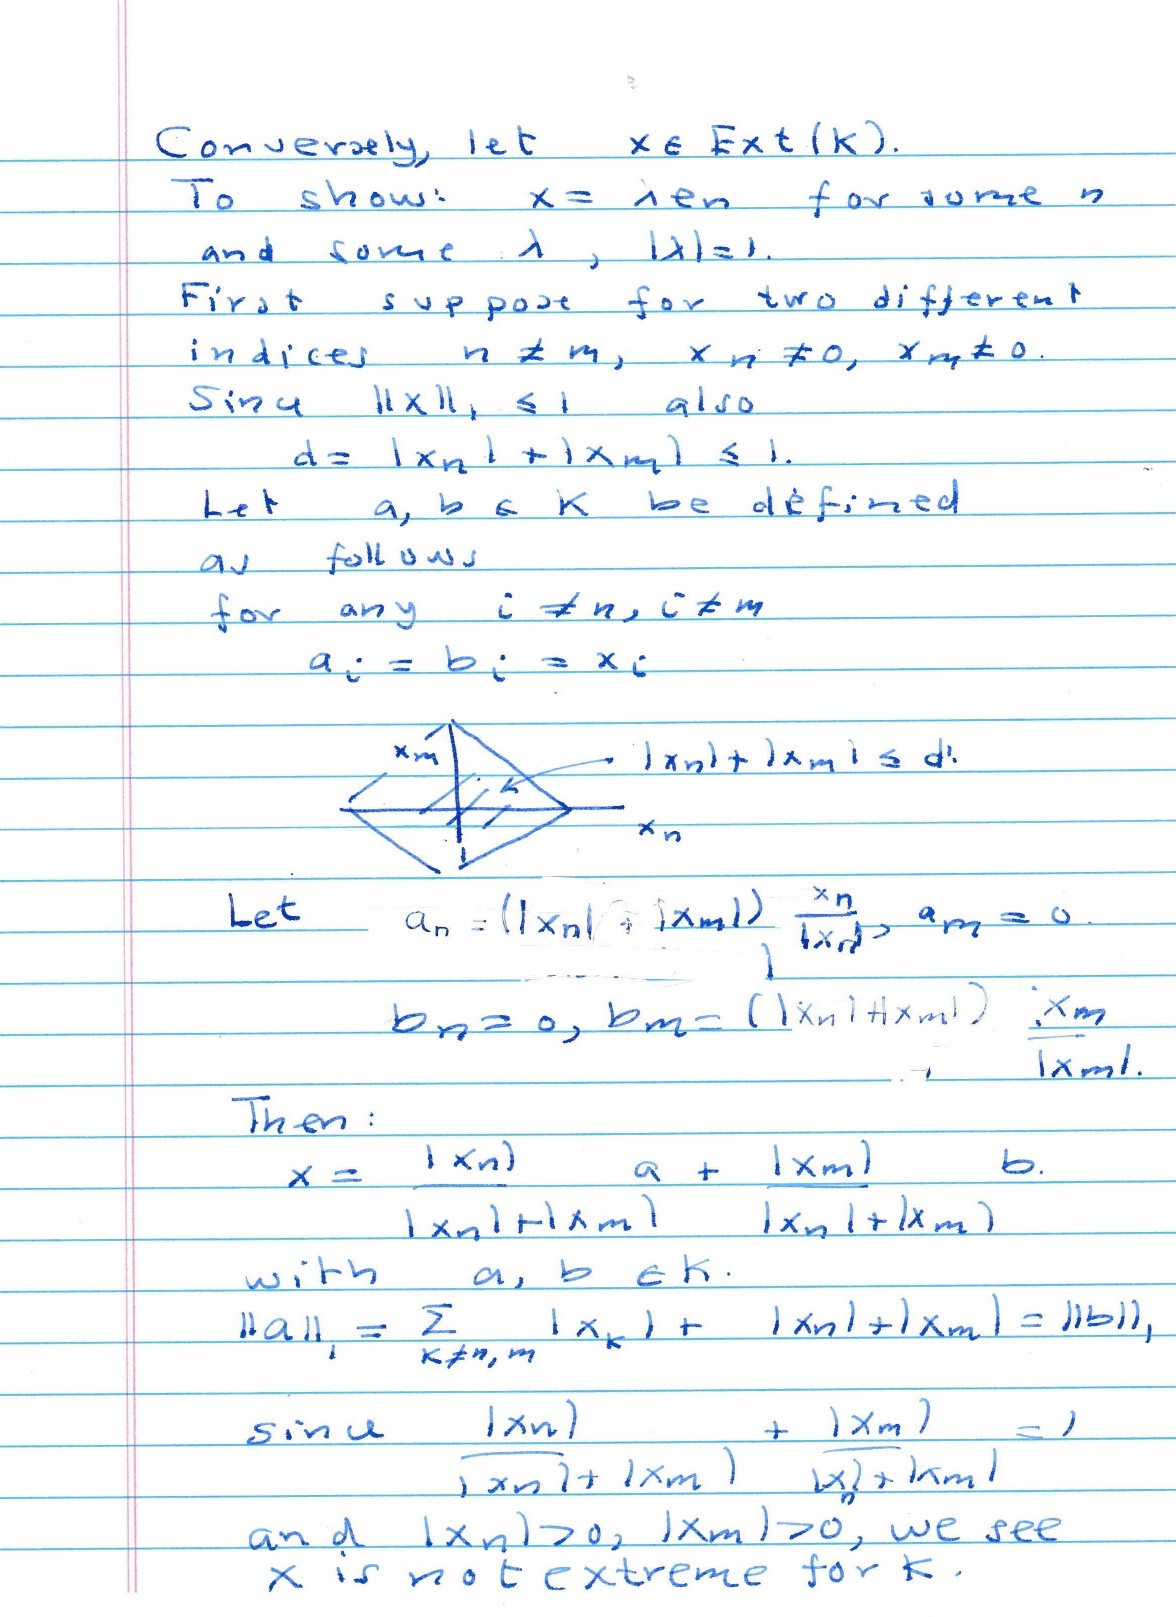 Conversely, let x ∈ Ext(K).
To show: x = λen for some n
and some λ, |λ|=1.
First suppose for two different
indices n ≠ m, xn ≠ 0, xm ≠ 0.
Since ||x||₁ ≤ 1 also
d = |xn| + |xm| ≤ 1.
Let a, b ∈ K be defined
as follows
for any i ≠ n, i ≠ m
ai = bi = xi
xm
|xn| + |xm| ≤ d.
xn
Let an = (|xn| + |xm|) xn/|xn|, am = 0.
bn = 0, bm = (|xn|+|xm|) xm/|xm|.
Then:
x = |xn|/(|xn|+|xm|) a + |xm|/(|xn|+|xm|) b.
with a, b ∈ K.
||a||₁ = Σ k≠n,m |xk| + |xn|+|xm| = ||b||₁
since |xn|/(|xn|+|xm|) + |xm|/(|xn|+|xm|) = 1
and |xn|>0, |xm|>0, we see
x is not extreme for K.